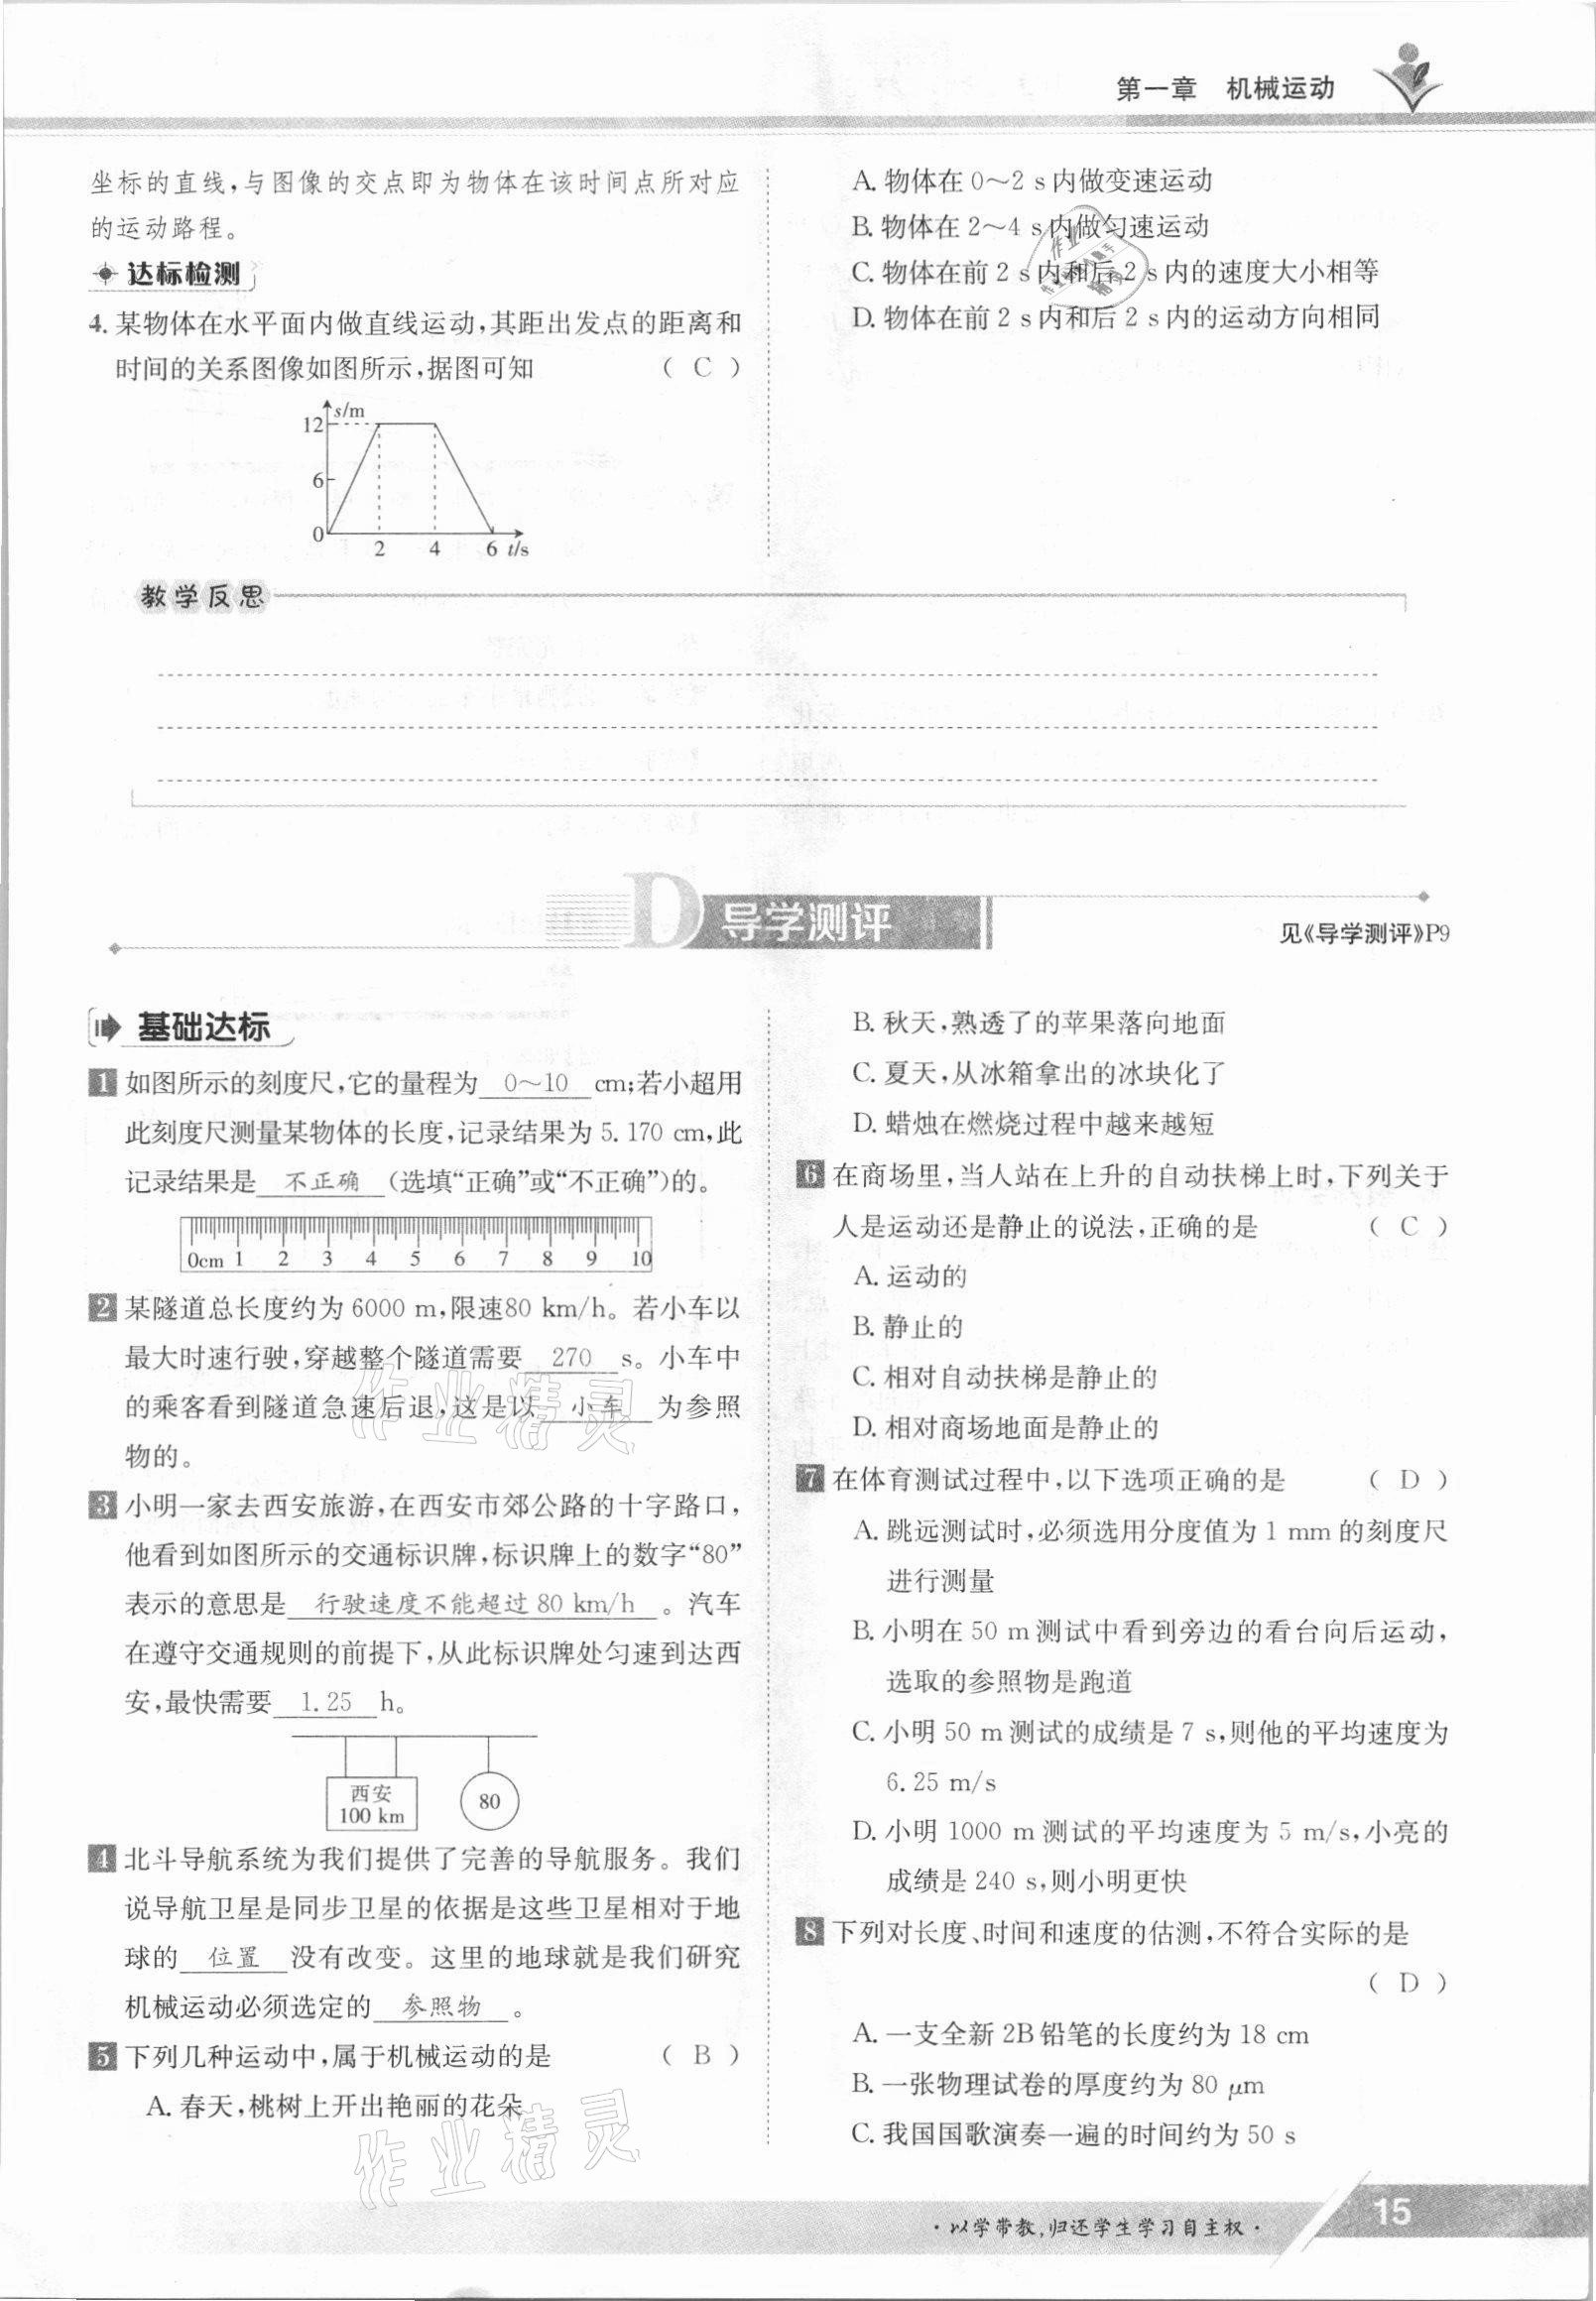 第一章 机械运动
坐标的直线,与图像的交点即为物体在该时间点所对应
的运动路程。
达标检测
4. 某物体在水平面内做直线运动,其距出发点的距离和
时间的关系图像如图所示,据图可知 ( C )
s/m
12
6
0
2 4 6 t/s
A. 物体在 0～2 s 内做变速运动
B. 物体在 2～4 s 内做匀速运动
C. 物体在前 2 s 内和后 2 s 内的速度大小相等
D. 物体在前 2 s 内和后 2 s 内的运动方向相同
教学反思
D 导学测评
见《导学测评》P9
基础达标
1 如图所示的刻度尺,它的量程为 0～10 cm;若小超用
此刻度尺测量某物体的长度,记录结果为 5.170 cm,此
记录结果是 不正确 (选填“正确”或“不正确”)的。
0cm 1 2 3 4 5 6 7 8 9 10
2 某隧道总长度约为 6000 m,限速80 km/h。若小车以
最大时速行驶,穿越整个隧道需要 270 s。小车中
的乘客看到隧道急速后退,这是以 小车 为参照
物的。
3 小明一家去西安旅游,在西安市郊公路的十字路口,
他看到如图所示的交通标识牌,标识牌上的数字“80”
表示的意思是 行驶速度不能超过 80 km/h 。汽车
在遵守交通规则的前提下,从此标识牌处匀速到达西
安,最快需要 1.25 h。
西安
100 km
80
4 北斗导航系统为我们提供了完善的导航服务。我们
说导航卫星是同步卫星的依据是这些卫星相对于地
球的 位置 没有改变。这里的地球就是我们研究
机械运动必须选定的 参照物 。
5 下列几种运动中,属于机械运动的是 ( B )
A. 春天,桃树上开出艳丽的花朵
B. 秋天,熟透了的苹果落向地面
C. 夏天,从冰箱拿出的冰块化了
D. 蜡烛在燃烧过程中越来越短
6 在商场里,当人站在上升的自动扶梯上时,下列关于
人是运动还是静止的说法,正确的是 ( C )
A. 运动的
B. 静止的
C. 相对自动扶梯是静止的
D. 相对商场地面是静止的
7 在体育测试过程中,以下选项正确的是 ( D )
A. 跳远测试时,必须选用分度值为 1 mm 的刻度尺
进行测量
B. 小明在 50 m 测试中看到旁边的看台向后运动,
选取的参照物是跑道
C. 小明 50 m 测试的成绩是 7 s,则他的平均速度为
6.25 m/s
D. 小明 1000 m 测试的平均速度为 5 m/s,小亮的
成绩是 240 s,则小明更快
8 下列对长度、时间和速度的估测,不符合实际的是
( D )
A. 一支全新 2B 铅笔的长度约为 18 cm
B. 一张物理试卷的厚度约为 80 μm
C. 我国国歌演奏一遍的时间约为 50 s
作业精灵
作业精灵
·以学带教,归还学生学习自主权·
15